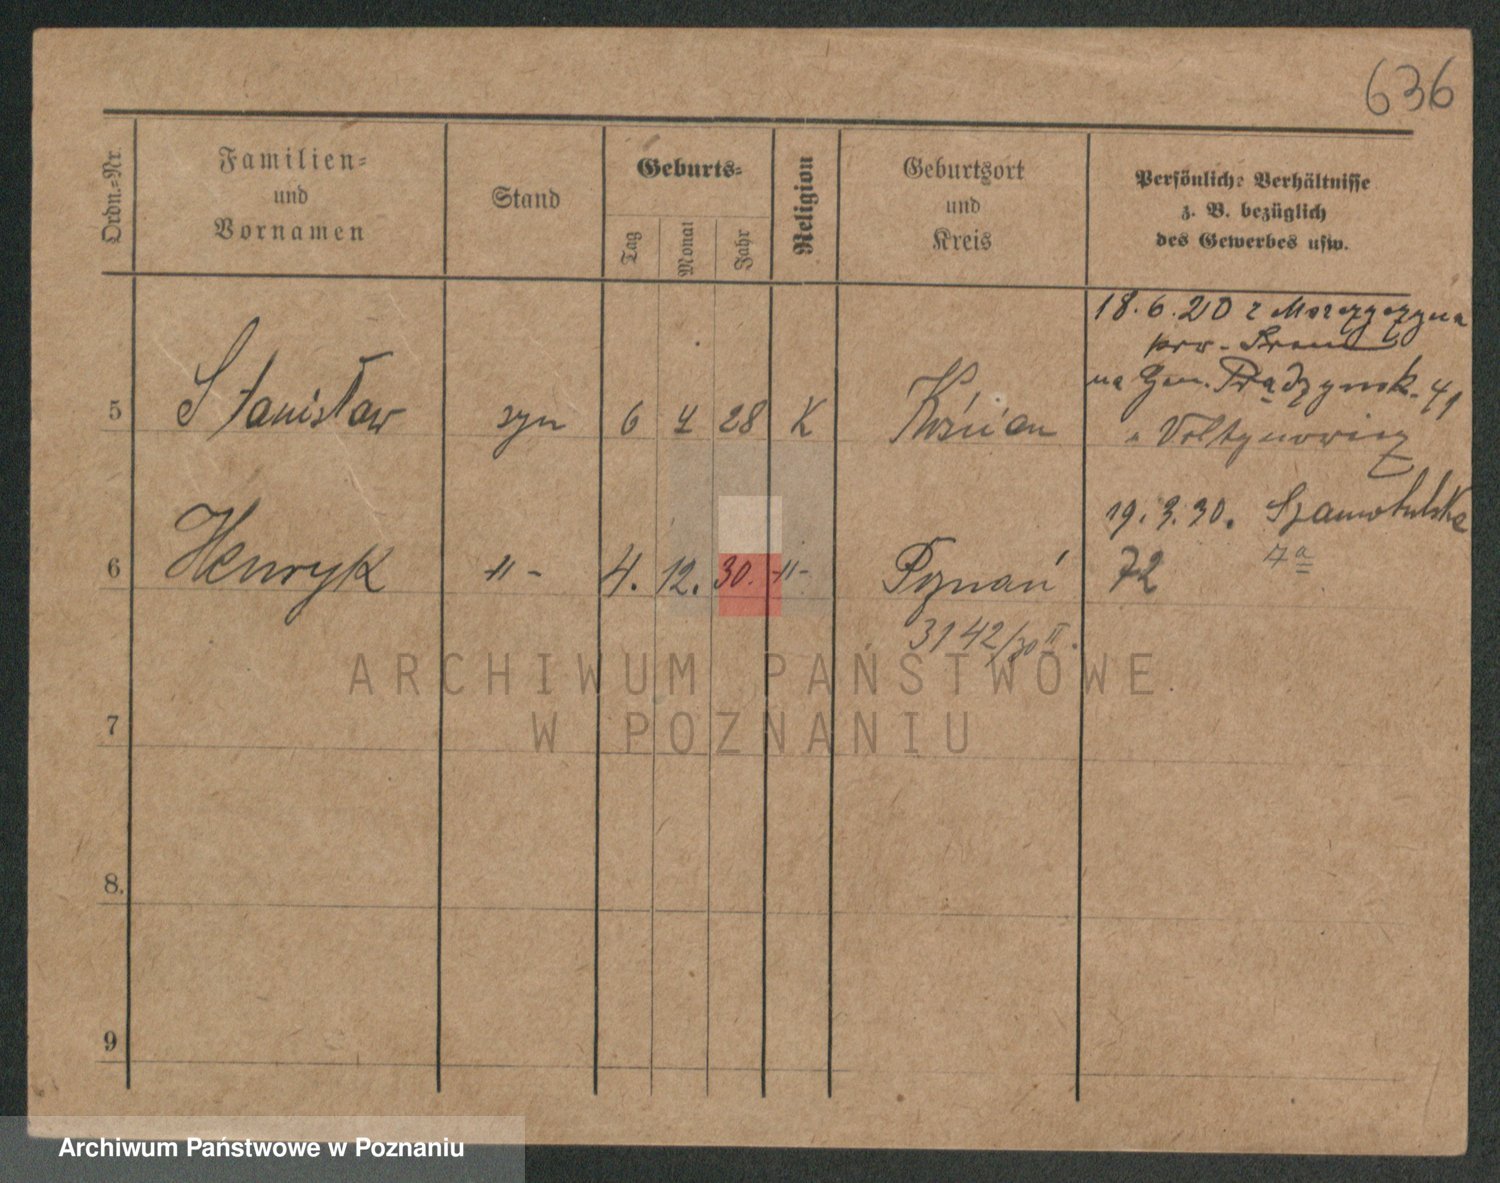 636
Ordn.=Nr.
Familien=
und
Vornamen
Stand
Geburts=
Tag
Monat
Jahr
Religion
Geburtsort
und
Kreis
Persönliche Verhältnisse
z. B. bezüglich
des Gewerbes usw.
18.6.20 z
na Gen. Prądzynsk. 41
5 Stanisław syn 6 4 28 K
6 Henryk -11- 4. 12. 30. -11- Poznań
3142/30 II.
19.3.30. Szamotulska
72 7a
7
8.
9
ARCHIWUM PAŃSTWOWE
W POZNANIU
Archiwum Państwowe w Poznaniu